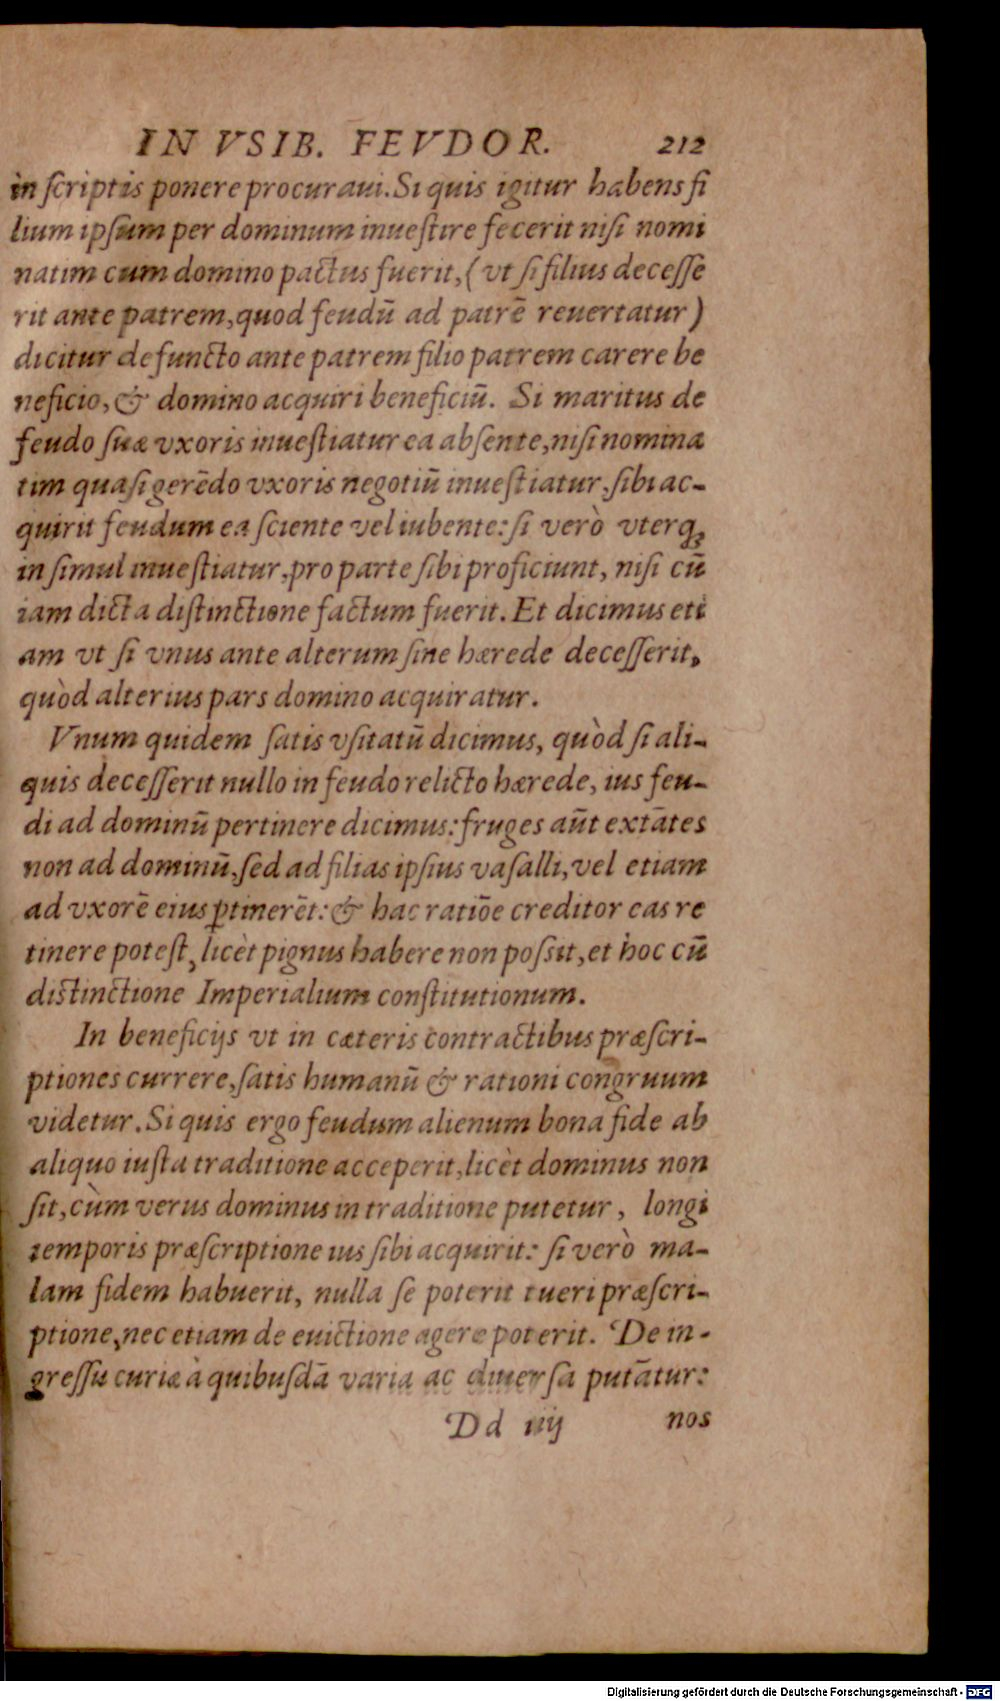 IN VSIB. FEVDOR. 212
in ſcriptis ponere procuraui. Si quis igitur habens fi
lium ipſum per dominum inueſtire fecerit niſi nomi
natim cum domino pactus fuerit, (vt ſi filius deceſſe
rit ante patrem, quod feudū ad patrē reuertatur)
dicitur defuncto ante patrem filio patrem carere be
neficio, & domino acquiri beneficiū. Si maritus de
feudo ſuæ vxoris inueſtiatur ea abſente, niſi nomina
tim quaſi gerēdo vxoris negotiū inueſtiatur, ſibi ac-
quirit feudum ea ſciente vel iubente: ſi verò vterq;
in ſimul inueſtiatur, pro parte ſibi proficiunt, niſi cū
iam dicta diſtinctione factum fuerit. Et dicimus eti
am vt ſi vnus ante alterum ſine hærede deceſſerit,
quòd alterius pars domino acquiratur.
Vnum quidem ſatis vſitatū dicimus, quòd ſi ali-
quis deceſſerit nullo in feudo relicto hærede, ius feu-
di ad dominū pertinere dicimus: fruges aūt extātes
non ad dominū, ſed ad filias ipſius vaſalli, vel etiam
ad vxorē eius ꝑtinerēt: & hac ratiōe creditor eas re
tinere poteſt, licèt pignus habere non poſsit, et hoc cū
diſtinctione Imperialium conſtitutionum.
In beneficijs vt in cæteris contractibus præſcri-
ptiones currere, ſatis humanū & rationi congruum
videtur. Si quis ergo feudum alienum bona fide ab
aliquo iuſta traditione acceperit, licèt dominus non
ſit, cùm verus dominus in traditione putetur, longi
temporis præſcriptione ius ſibi acquirit: ſi verò ma-
lam fidem habuerit, nulla ſe poterit tueri præſcri-
ptione, nec etiam de euictione agere poterit. De in-
greſſu curiæ à quibuſdā varia ac diuerſa putātur:
Dd iiij nos
Digitalisierung gefördert durch die Deutsche Forschungsgemeinschaft - DFG